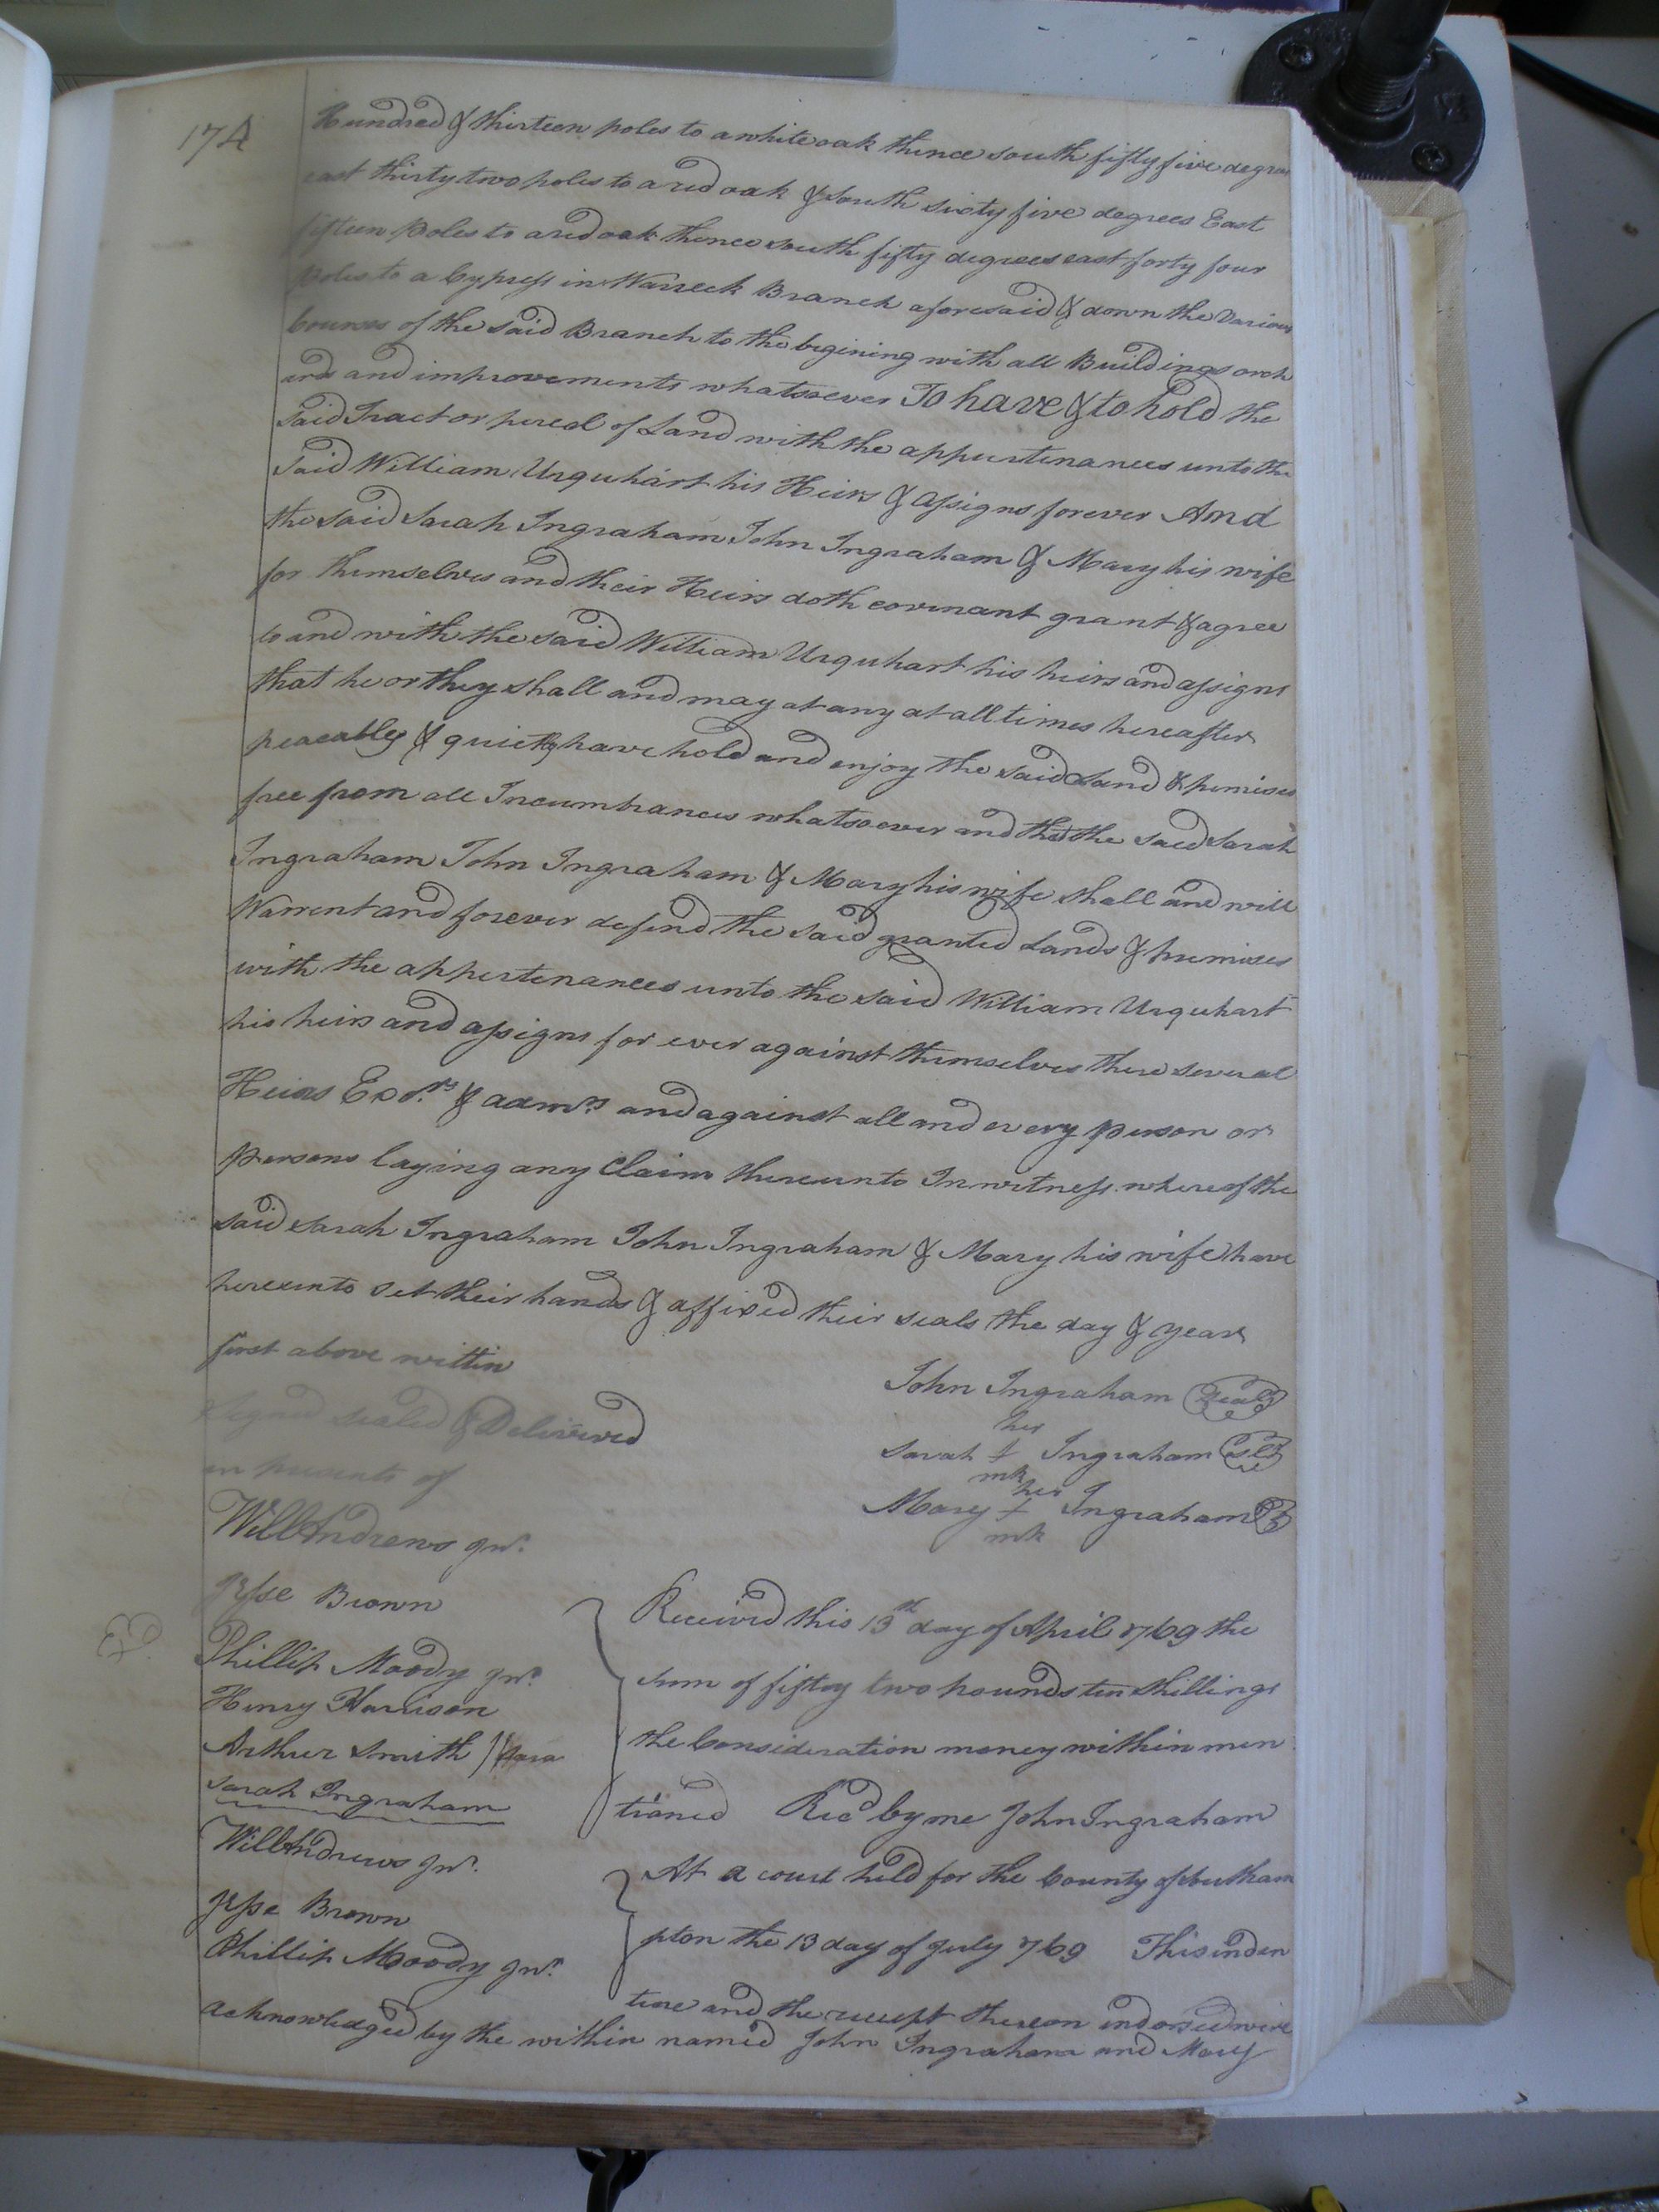 174
Hundred & thirteen poles to a white oak thence south fifty five degrees
east thirty two poles to a red oak & South sixty five degrees East
fifteen Poles to a red oak thence south fifty degrees east forty four
poles to a Cypress in Warreck Branch aforesaid & down the Various
Courses of the said Branch to the begining with all Buildings orch
ards and improvements whatsoever To have & to hold the
said Tract or percel of Land with the appurtenances unto the
said William Urquhart his Heirs & assigns forever And
the said Sarah Ingraham John Ingraham & Mary his wife
for themselves and their Heirs doth covenant grant & agree
to and with the said William Urquhart his heirs and assigns
that he or they shall and may at any at all times hereafter
peaceably & quietly have hold and enjoy the said Land & premises
free from all Incumbrances whatsoever and that the said Sarah
Ingraham John Ingraham & Mary his wife shall and will
Warrent and forever defend the said granted Lands & premises
with the appertenances unto the said William Urquhart
his heirs and assigns for ever against themselves there several
Heirs Exors. & admrs and against all and every person or
Persons laying any Claim thereunto In witness whereof the
said Sarah Ingraham John Ingraham & Mary his wife have
hereunto set their hands & affixed their seals the day & year
first above written
Signd sealed & Delivered
in presents of
John Ingraham Seal
her
Sarah + Ingraham Sel
mk
her
Mary + Ingraham
mk
Will Andrews Jnr.
Jesse Brown
Phillip Moody Jnr.
Henry Harrison
Arthur Smith
Sarah Ingraham
Will Andrews Jnr.
Jesse Brown
Phillip Moody Jnr.
Received this 13th day of April 1769 the
sum of fifty two pounds ten shillings
the Consideration money within men
tioned Recd by me John Ingraham
At a court held for the County of Southam
pton the 13 day of July 1769 This inden
ture and the receipt thereon indorsed were
acknowledged by the within named John Ingraham and Mary